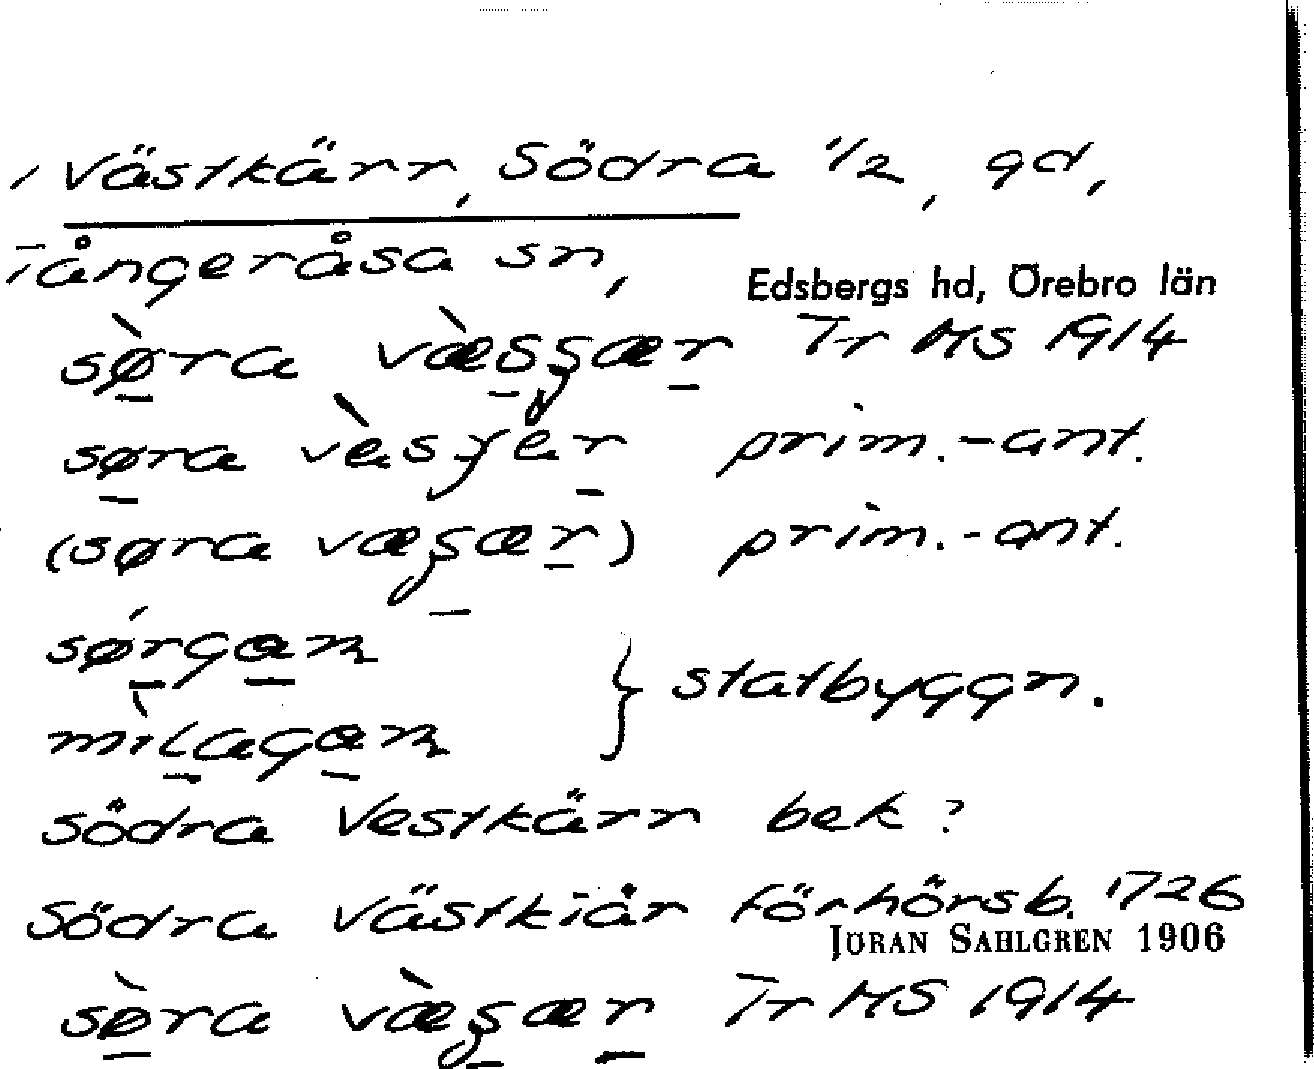 Västkärr, Södra 1/2, gd,
Tångeråsa sn,
Edsbergs hd, Örebro län
sø̀ra væ̀sʂær Tr MS 1914
søra vèsʃer prim.-ant.
(søra væʂær) prim.-ant.
sørgan
} statbyggn.
mìlagan
Södra Vestkärr bek?
Södra Västkiär förhörsb. 1726
JÖRAN SAHLGREN 1906
sø̀ra væ̀ʂær Tr MS 1914